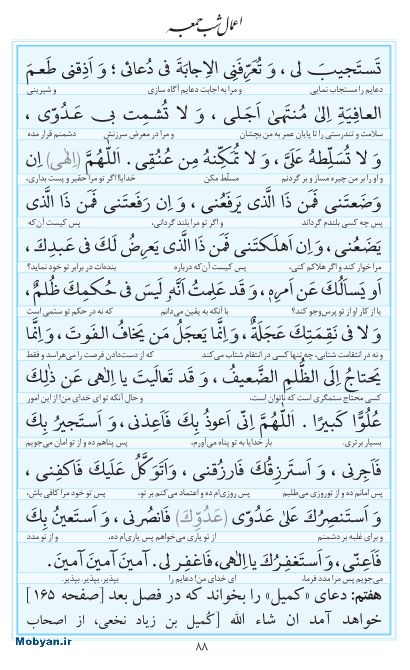 اعمال شب جمعه
تَستَجیبَ لی ، وَ تُعَرِّفَنِی الاِجابَةَ فی دُعائی ؛ وَ اَذِقنی طَعمَ
دعایم را مستجاب نمایی و مرا به اجابت دعایم آگاه سازی و شیرینی
العافِیَةِ اِلیٰ مُنتَهیٰ اَجَلی ، وَ لا تُشمِت بی عَدُوّی ،
سلامت و تندرستی را تا پایان عمر به من بچشان و مرا در معرض سرزنش دشمنم قرار مده
وَ لا تُسَلِّطهُ عَلَیَّ ، وَ لا تُمَکِّنهُ مِن عُنُقی . اَللّٰهُمَّ (اِلٰهی) اِن
و او را بر من چیره مساز و بر گردنم مسلّط مکن خدایا! اگر تو مرا حقیر و پست بداری،
وَضَعتَنی فَمَن ذَا الَّذی یَرفَعُنی ، وَ اِن رَفَعتَنی فَمَن ذَا الَّذی
پس چه کسی بلندم گرداند و اگر تو مرا بلند گردانی، پس کیست آن‌که
یَضَعُنی ، وَ اِن اَهلَکتَنی فَمَن ذَا الَّذی یَعرِضُ لَکَ فی عَبدِکَ ،
مرا خوار کند و اگر هلاکم کنی، پس کیست آن‌که درباره بنده‌ات در برابر تو خود نماید؟
اَو یَسأَلُکَ عَن اَمرِهِ ، وَ قَد عَلِمتُ اَنَّهُ لَیسَ فی حُکمِکَ ظُلمٌ ،
یا از کار او از تو پرس‌وجو کند؟ با آنکه به یقین می‌دانم که نه در حکم تو ستمی است
وَ لا فی نَقِمَتِکَ عَجَلَةٌ ، وَ اِنَّما یَعجَلُ مَن یَخافُ الفَوتَ ، وَ اِنَّما
و نه در انتقامت شتابی، چه تنها کسی در انتقام شتاب می‌کند که از دست‌دادن فرصت را می‌هراسد و فقط
یَحتاجُ اِلَی الظُّلمِ الضَّعیفُ ، وَ قَد تَعالَیتَ یا اِلٰهی عَن ذٰلِکَ
کسی محتاج ستمگری است که ناتوان است. و حال آنکه تو ای خدای من! از این امور
عُلُوًّا کَبیرًا . اَللّٰهُمَّ اِنّی اَعوذُ بِکَ فَاَعِذنی ، وَ اَستَجیرُ بِکَ
بسیار برتری. بار خدایا به تو پناه می‌آورم، پس پناهم ده و از تو امان می‌جویم
فَاَجِرنی ، وَ اَستَرزِقُکَ فَارزُقنی ، وَ اَتَوَکَّلُ عَلَیکَ فَاکفِنی ،
پس امانم ده و از تو روزی می‌طلبم پس روزی‌ام ده و اعتماد می‌کنم بر تو، پس تو خود مرا کافی باش،
وَ اَستَنصِرُکَ عَلیٰ عَدُوّی (عَدُوِّکَ) فَانصُرنی ، وَ اَستَعینُ بِکَ
و برای غلبه بر دشمنم از تو یاری می‌خواهم پس یاری‌ام ده، و از تو مدد
فَاَعِنّی ، وَ اَستَغفِرُکَ یا اِلٰهی، فَاغفِر لی . آمینَ آمینَ آمینَ.
می‌جویم پس مرا مدد فرما، ای خدای من! دعایم را بپذیر. بپذیر، بپذیر.
هفتم: دعای «کمیل» را بخواند که در فصل بعد [صفحه ۱۶۵]
خواهد آمد ان شاء الله [کُمیل بن زیاد نخعی، از اصحاب
Mobyan.ir
۸۸